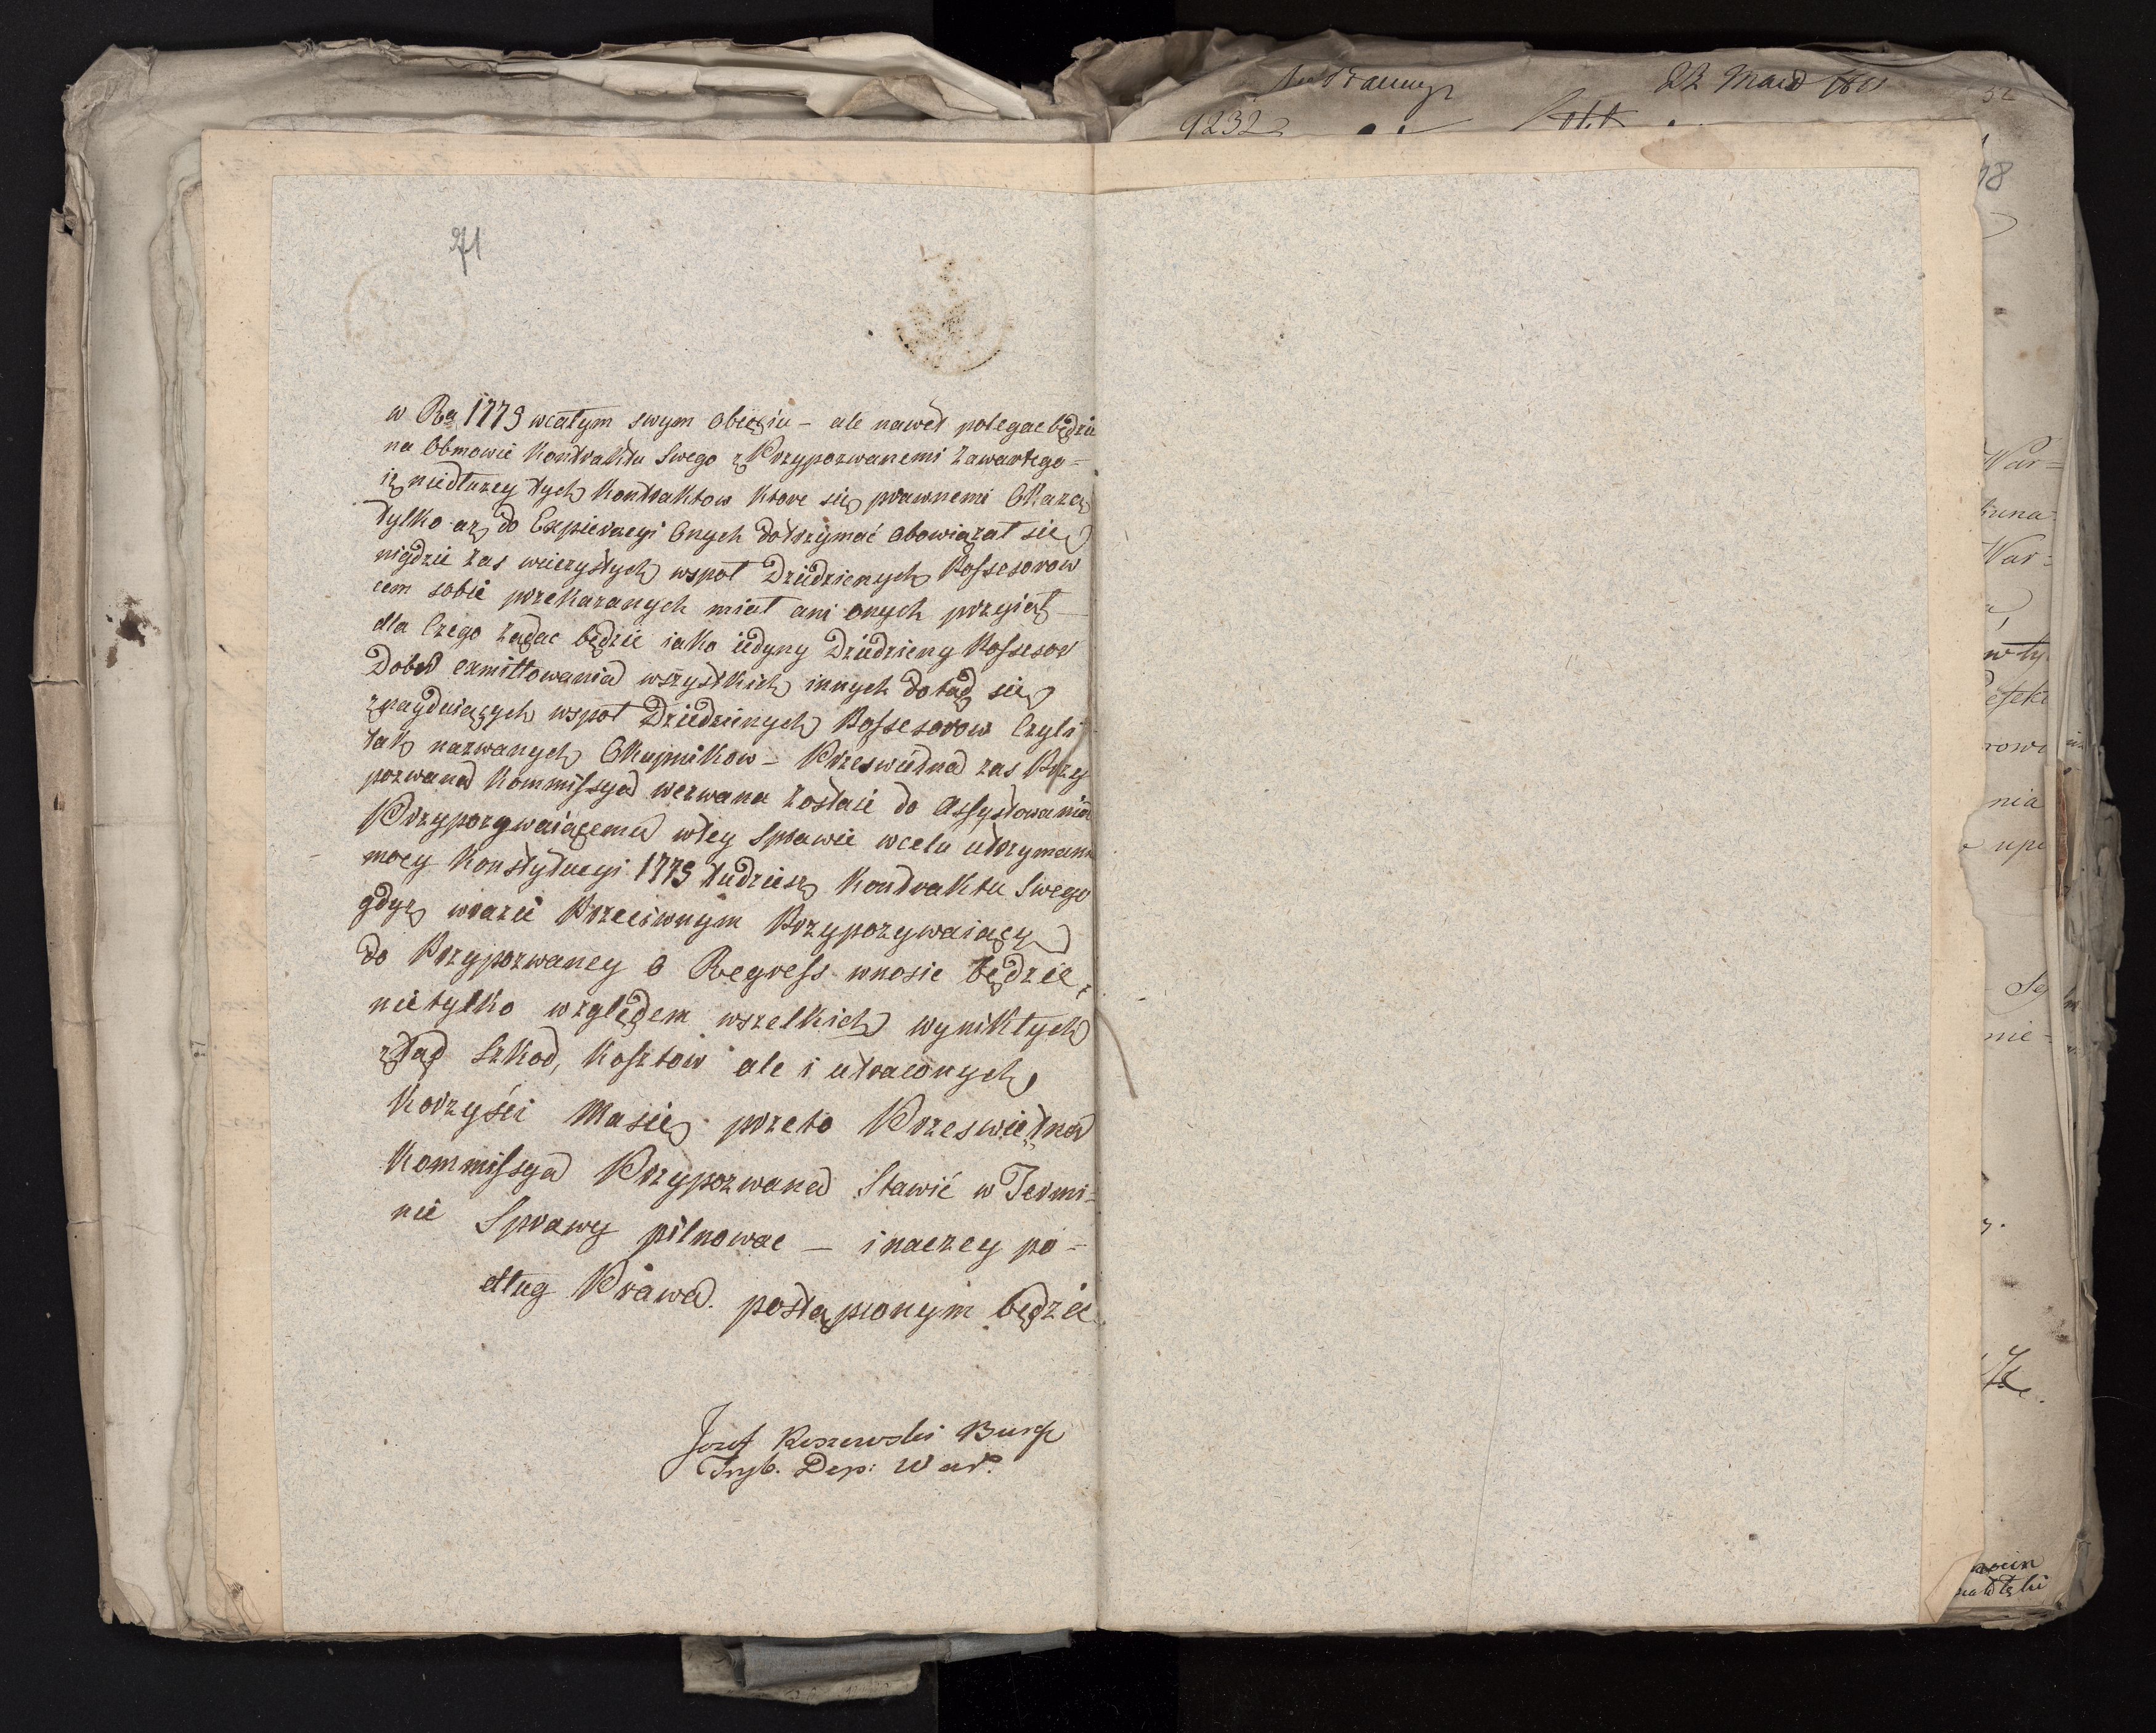 71
w Ra 1775 wcałym swym obięciu – ale nawet polegac będzie
na Obmowie Kontraktu Swego z Przypozwanemi zawartego =
iż niedłużey tych Kontraktow ktore się prawnemi Okażą
tylko aż do Expieracyi Onych dotrzymać obowiązał się
nigdzie zas wieczystych wspoł Dziedzicznych Possesorow
cem sobie przekazanych miał ani onych przyiął –
dla Czego żądac będzie iako iedyny Dziedziczny Possesor
Dobr exmittowania wszystkich innych dotąd się
znayduiących wspoł Dziedzicznych Possesorow Czyli
tak nazwanych Okupnikow – Prześwietna zas Przy
pozwana Kommissya wezwana zostaie do Assystowania
Przypozywaiącemu wtey Sprawie wcelu utrzymania
mocy Konstytucyi 1775 tudziesz Kontraktu Swego
gdyż wrazie Przeciwnym Przypozywaiący
do Przypozwaney o Regress wnosic będzie,
nietylko względem wszelkich wynikłych
ztąd Szkod, Kosztow ale i utraconych
Korzyści Masię przeto Prześwietna
Kommissya Przypozwana Stawić w Termi=
nie Sprawy pilnowac – inaczey po=
dług Prawa postąpionym będzie
Jozef Burg
Tryb. Dep: War:
9232
22 Maia
32
18
War=
War=
w ty
rowi
nia
nie=